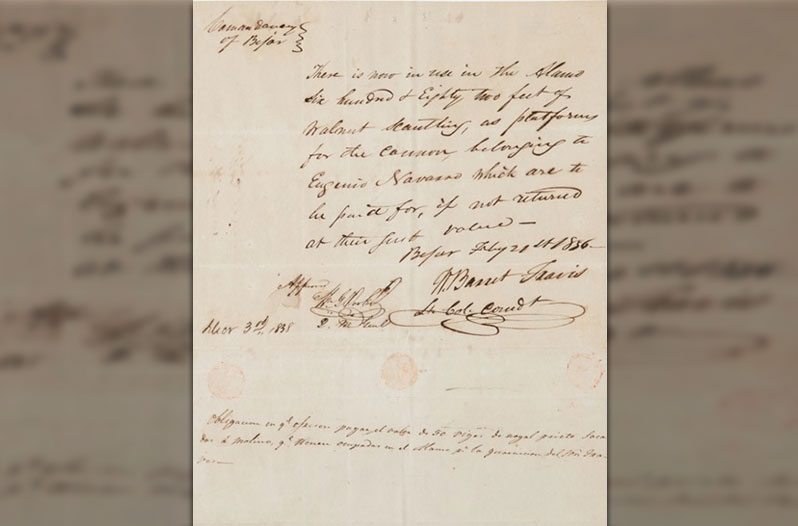 Comandancy
of Bejar
There is now in use in the Alamo
Six hundred & Eighty two feet of
Walnut Scantling, as platforms
for the cannon, belonging to
Eugenio Navarro which are to
be paid for, if not returned
at their just value —
Bejar Feby 21st 1836
W Barret Travis
Lt Col. Comdt
Q. M
3rd 1838
Obligacion en qe ofrecen pagar el valor de 50 vigas de nogal prieto
de molino, qe tienen ocupadas en el Alamo pr la guarnicion del